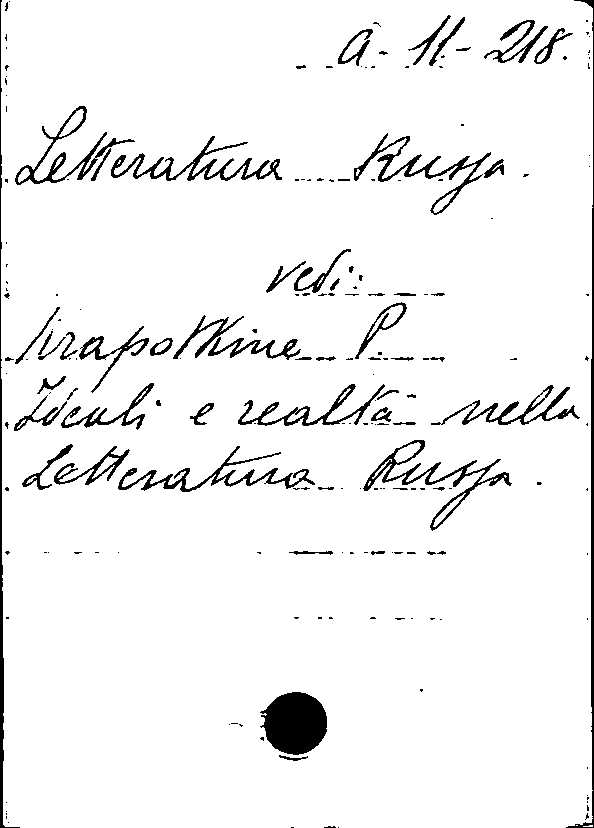 A-11-218.
Letteratura Russa.
vedi:
Krapotkine P.
Ideali e realtà nella
Letteratura Russa.